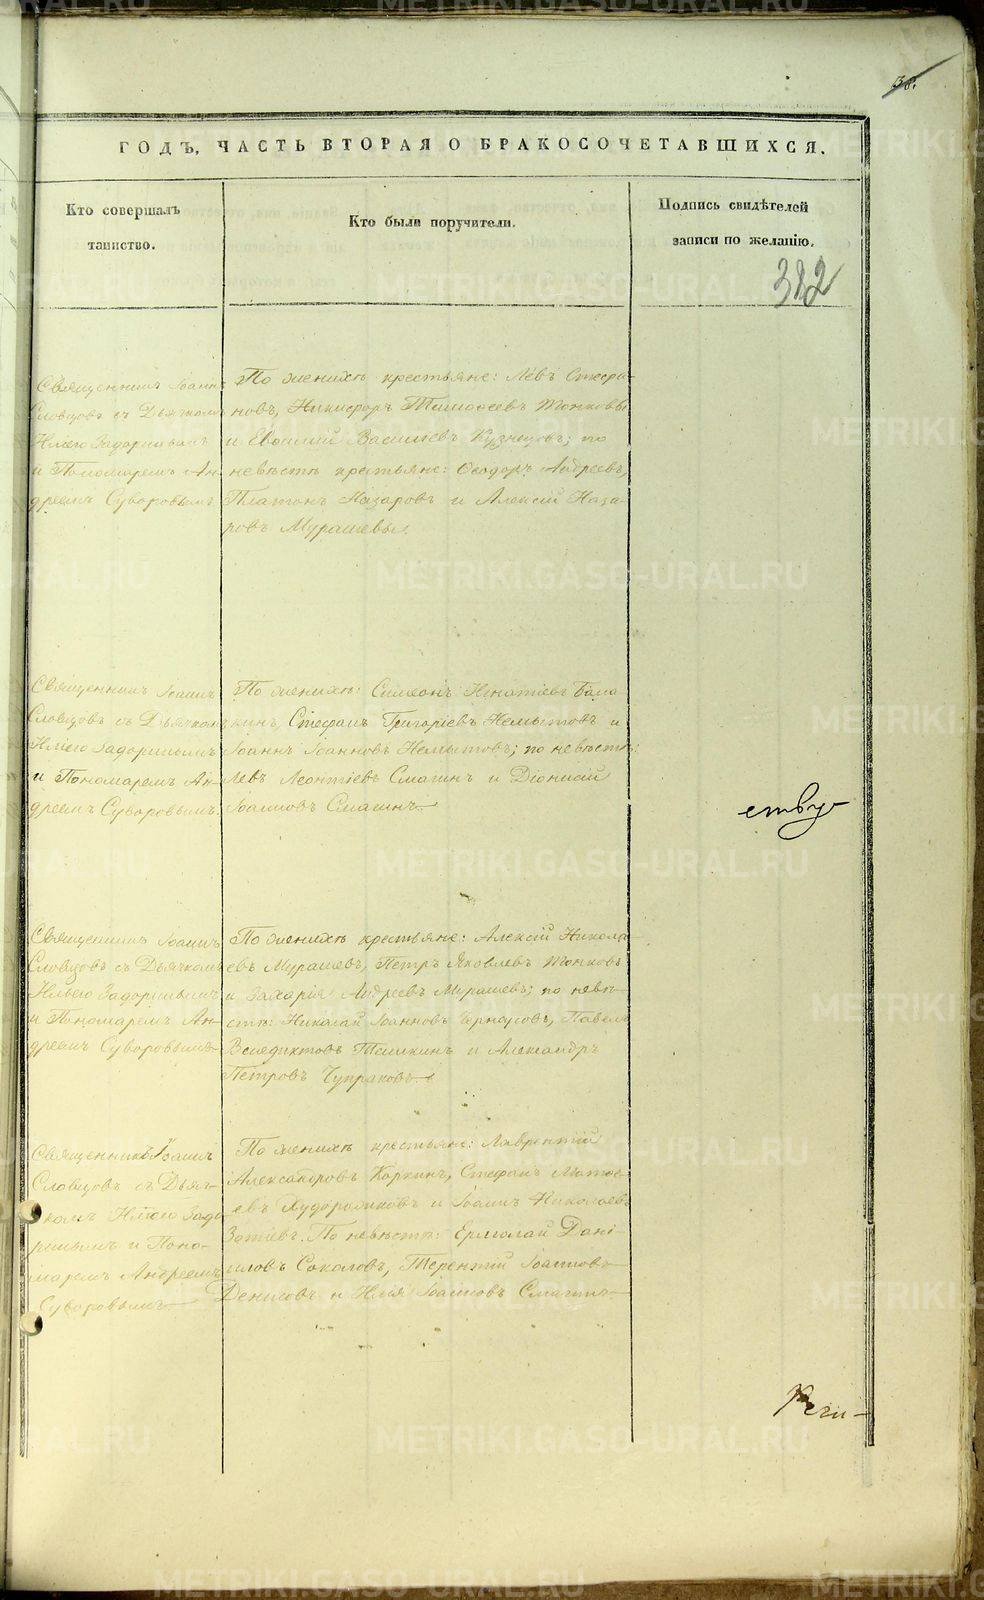 38.
ГОДЪ, ЧАСТЬ ВТОРАЯ О БРАКОСОЧЕТАВШИХСЯ.
Кто совершалъ
таинство.
Кто были поручители.
Подпись свидѣтелей
записи по желанію.
382
Священникъ Іоаннъ
Словцовъ съ Дьячкомъ
Ильею Задоринымъ
и Пономаремъ Ан-
дреемъ Суворовымъ
По женихѣ крестьяне: Левъ Стефа-
новъ, Никифоръ Тимофеевъ Тонковы
и Евфимій Васильевъ Кузнецовъ; по
невѣстѣ крестьяне: Феодоръ Андреевъ,
Платонъ Назаровъ и Алексій Наза-
ровъ Мурашевы.
Священникъ Іоаннъ
Словцовъ съ Дьячкомъ
Ильею Задоринымъ
и Пономаремъ Ан-
дреемъ Суворовымъ.
По женихѣ: Симеонъ Игнатіевъ
Стефанъ Григоріевъ Немытовъ и
Іоаннъ Іоанновъ Немытовъ; по невѣстѣ:
Левъ Леонтіевъ Смагинъ и Діонисій
Іоанновъ Смагинъ
ству-
Священникъ Іоаннъ
Словцовъ съ Дьячкомъ
Ильею Задоринымъ
и Пономаремъ Ан-
дреемъ Суворовымъ
По женихѣ крестьяне: Алексій Никола-
евъ Мурашевъ, Петръ Яковлевъ Тонковъ
и Захарія Андреевъ Мурашевъ; по невѣ-
стѣ: Николай Іоанновъ Черноусовъ, Павелъ
Венедиктовъ и Александръ
Петровъ Чупраковъ
Священникъ Іоаннъ
Словцовъ съ Дьяч-
комъ Ильею Задо-
ринымъ и Поно-
маремъ Андреемъ
Суворовымъ
По женихѣ крестьяне: Лаврентій
Александровъ Коркинъ, Стефанъ Матѳе-
евъ Худорожковъ и Іоаннъ Николаевъ
Зотѣевъ. По невѣстѣ: Ермолай Дані-
иловъ Соколовъ, Терентій Іоанновъ
Денисовъ и Илія Іоанновъ Смагинъ
METRIKI.GASO-URAL.RU